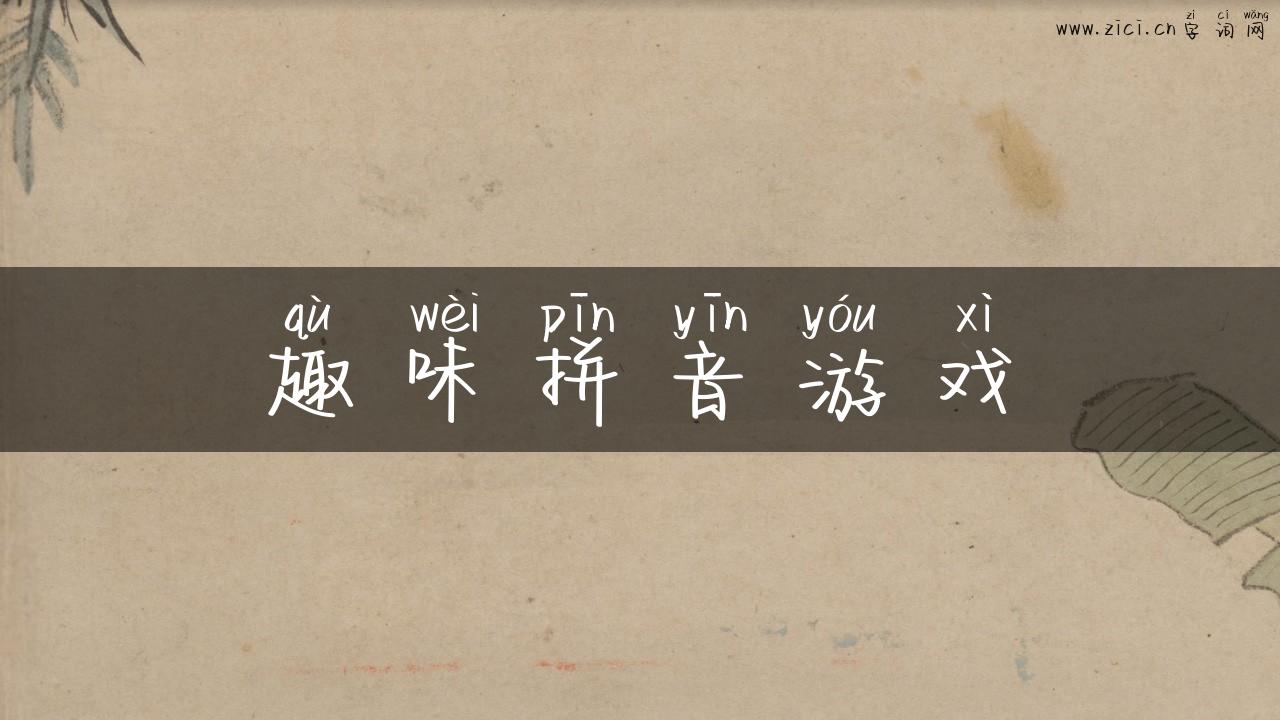 zì cí wǎng
www.zici.cn 字词网
qù wèi pīn yīn yóu xì
趣味拼音游戏